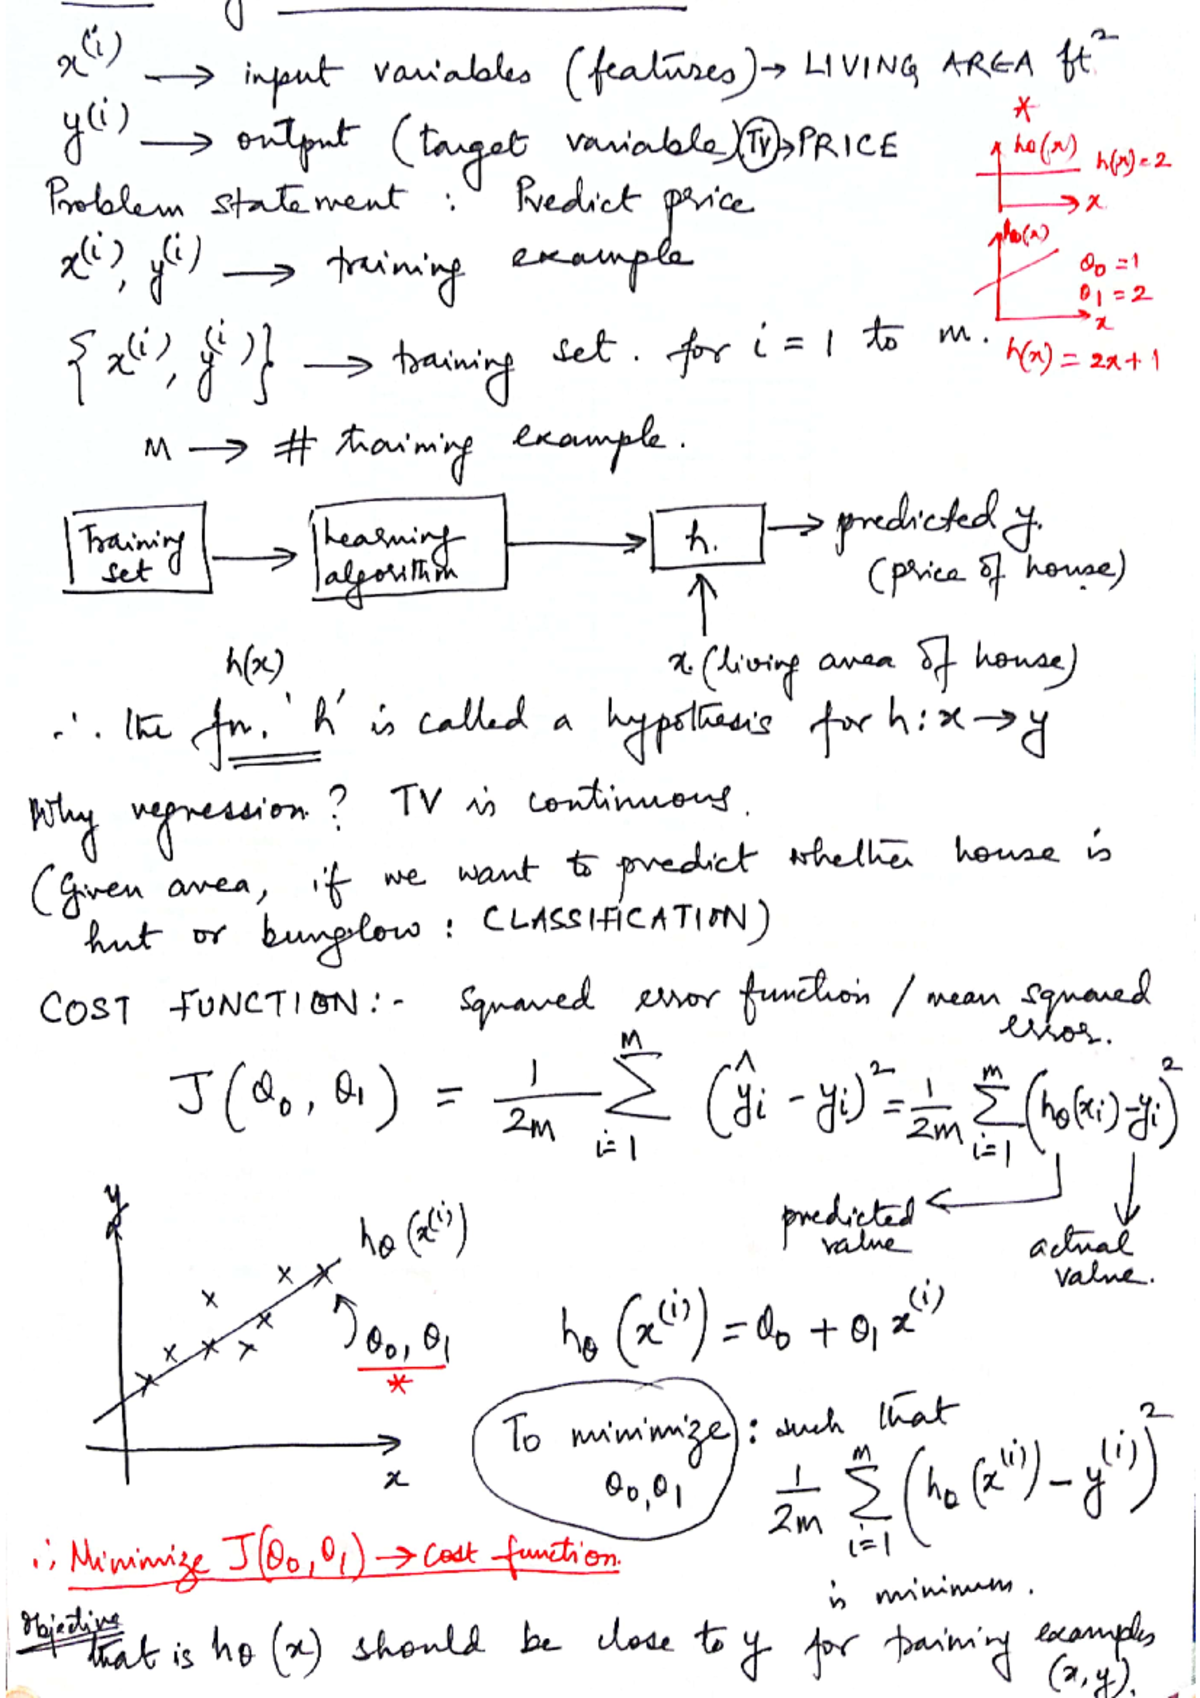 x^(i) → input variables (features) → LIVING AREA ft²
y^(i) → output (target variable) (TV) → PRICE
Problem statement : Predict price
x^(i), y^(i) → training example
{x^(i), y^(i)} → training set. for i = 1 to m.
M → # training example.
*
hθ(x) h(x) = 2
x
hθ(x)
θ₀ = 1
θ₁ = 2
x
h(x) = 2x + 1
Training set → Learning algorithm → h. → predicted y.
(price of house)
h(x) x. (living area of house)
∴ the fn. 'h' is called a hypothesis for h: x → y
Why regression? TV is continuous.
(Given area, if we want to predict whether house is
hut or bunglow : CLASSIFICATION)
COST FUNCTION :- Squared error function / mean squared
error.
J(θ₀, θ₁) = 1/2m Σ_{i=1}^{M} (ŷi - yi)² = 1/2m Σ_{i=1}^{m} (hθ(xi) - yi)²
predicted value actual value.
y
hθ(x^(i))
θ₀, θ₁
*
x
hθ(x^(i)) = θ₀ + θ₁ x^(i)
To minimize : such that
θ₀, θ₁ 1/2m Σ_{i=1}^{m} (hθ(x^(i)) - y^(i))²
is minimum.
∴ Minimize J(θ₀, θ₁) → Cost function.
Objective
that is hθ(x) should be close to y for training examples
(x, y).